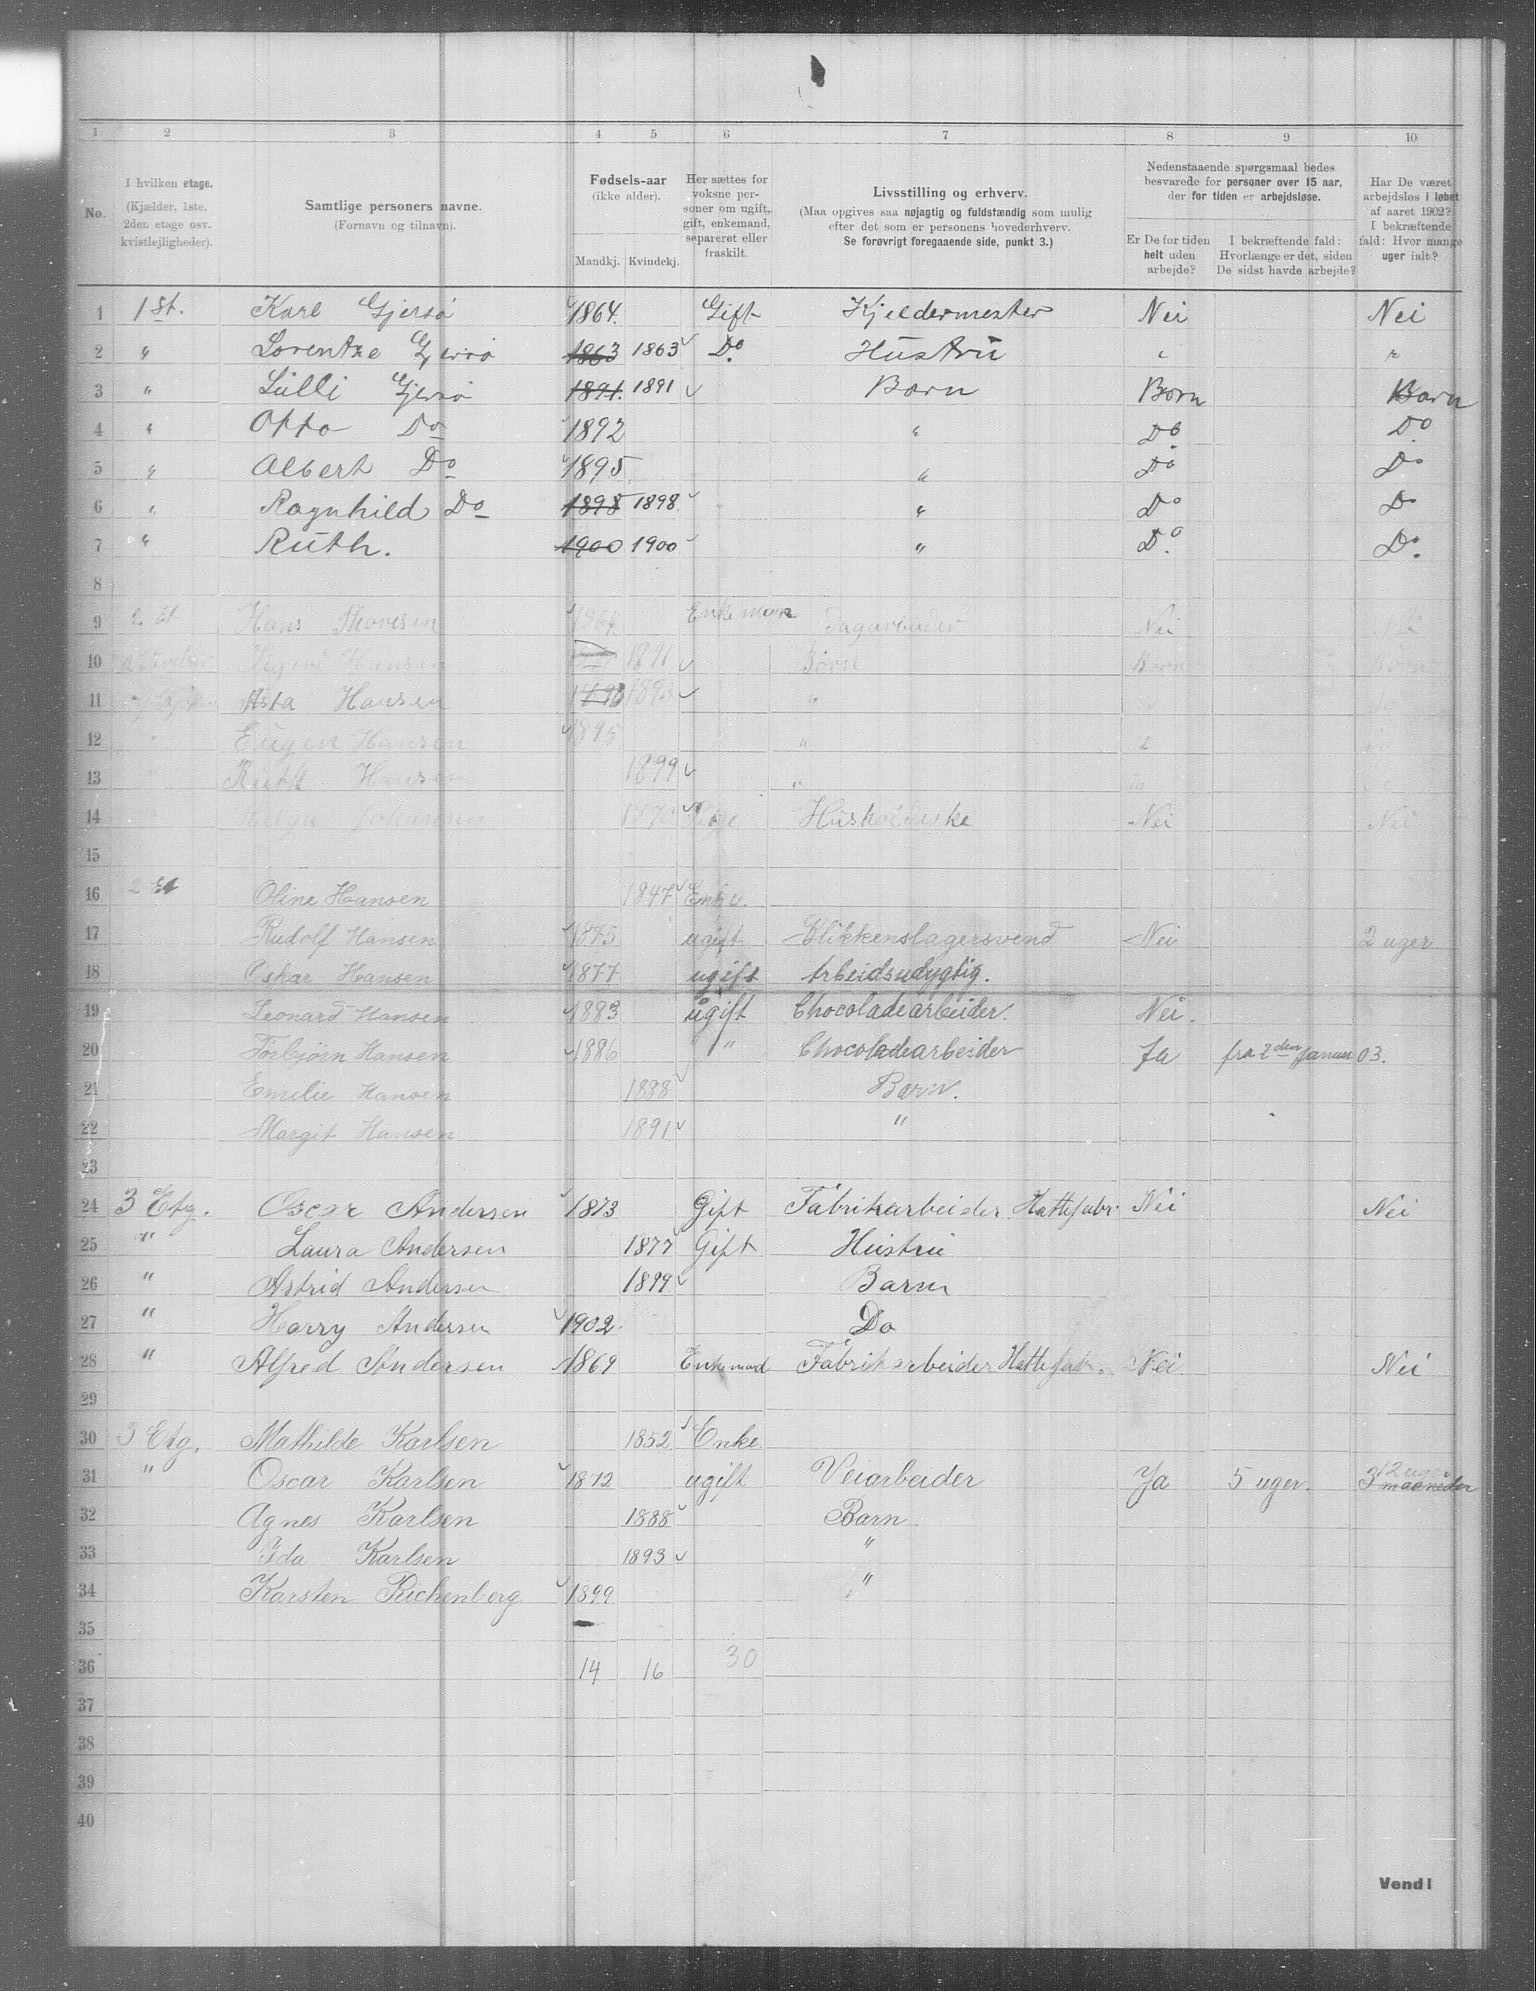 1 2 3 4 5 6 7 8 9 10
No.
I hvilken etage.
(Kjælder, 1ste,
2den etage osv.
kvistlejligheder).
Samtlige personers navne.
(Fornavn og tilnavn).
Fødsels-aar
(ikke alder).
Mandkj. Kvindekj.
Her sættes for
voksne per-
soner om ugift,
gift, enkemand,
separeret eller
fraskilt.
Livsstilling og erhverv.
(Maa opgives saa nøjagtig og fuldstændig som mulig
efter det som er personens hovederhverv.
Se forøvrigt foregaaende side, punkt 3.)
Nedenstaaende spørgsmaal bedes
besvarede for personer over 15 aar,
der for tiden er arbejdsløse.
Er De for tiden
helt uden
arbejde?
I bekræftende fald:
Hvorlænge er det, siden
De sidst havde arbejde?
Har De været
arbejdsløs i løbet
af aaret 1902?
I bekræftende
fald: Hvor mange
uger ialt?
1 1 St. Karl Gjersö 1864. Gift Kjeldermester Nei Nei
2 " Lorentze Gjersö 1863 1863 Do. Hustru " "
3 " Lülli Gjersö 1891. 1891 Barn Barn Barn
4 " Otto Do 1892 " Do Do
5 " Albert Do 1895 " Do Do
6 " Ragnhild Do 1898 1898 " Do Do
7 " Ruth. 1900 1900 " Do. Do.
8
9 2 Et Hans Thoresen 1864 Enkeman Dagarbeider Nei Nei
10 Hansen 1891 Børn Børn Børn
11 Asta Hansen 1893 1893 "
12 " Eugen Hansen 1895 "
13 " Ruth Hansen 1899 "
14 Helga Johansen Husholderske Nei Nei
15
16 2 Et Oline Hansen 1847 Enke.
17 Rudolf Hansen 1875 ugift Blikkenslagersvend Nei 2 uger
18 Oskar Hansen 1877 ugift Arbeidsudygtig.
19 Leonard Hansen 1883 ugift Chocoladearbeider. Nei.
20 Torbjørn Hansen 1886 " Chocoladearbeider Ja fra 2den Januar 03.
21 Emilie Hansen 1888 Barn.
22 Margit Hansen 1891 "
23
24 3 Etg. Oscar Andersen 1873 Gift Fabrikarbeider Hattefabr. Nei Nei
25 " Laura Andersen 1877 Gift Hustru
26 " Astrid Andersen 1899 Barn
27 " Harry Andersen 1902. Do
28 " Alfred Andersen 1869 Enkemand Fabrikarbeider Hattefab. Nei. Nei
29
30 3 Etg. Mathilde Karlsen 1852 Enke
31 " Oscar Karlsen 1872 ugift Veiarbeider Ja 5 uger. 3 maaneder 12 uger
32 Agnes Karlsen 1888 Barn
33 Ida Karlsen 1893 "
34 Karsten Richenberg 1899 "
35
36 14 16 30
37
38
39
40
Vend!